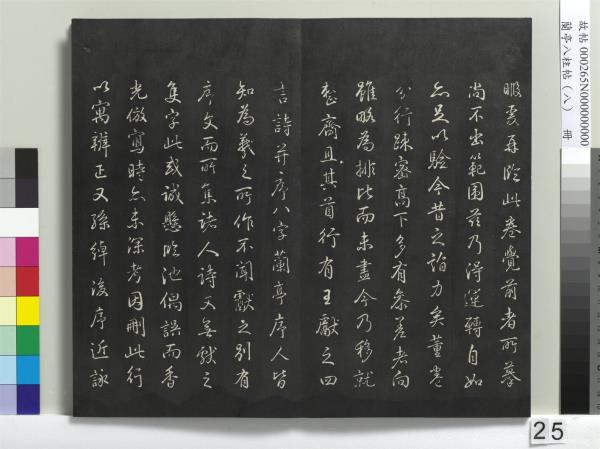 暇重再臨此卷覺前者所摹
尚不出範圍茲乃浔運轉自如
亦足以驗今昔之詣力矣董卷
分行疎密高下多有叅差者向
雖略為排比而未盡今乃移就
整齊且其首行有王獻之四
言詩并序八字蘭亭序人皆
知為羲之所作不聞獻之別有
序文而所集諸人詩又無獻之
隻字此或誠懸臨池偶誤而香
光倣寫時亦未深考因刪此行
以寓辨正又孫綽後序近詠
故帖 000265N000000000
蘭亭八柱帖（八） 冊
25